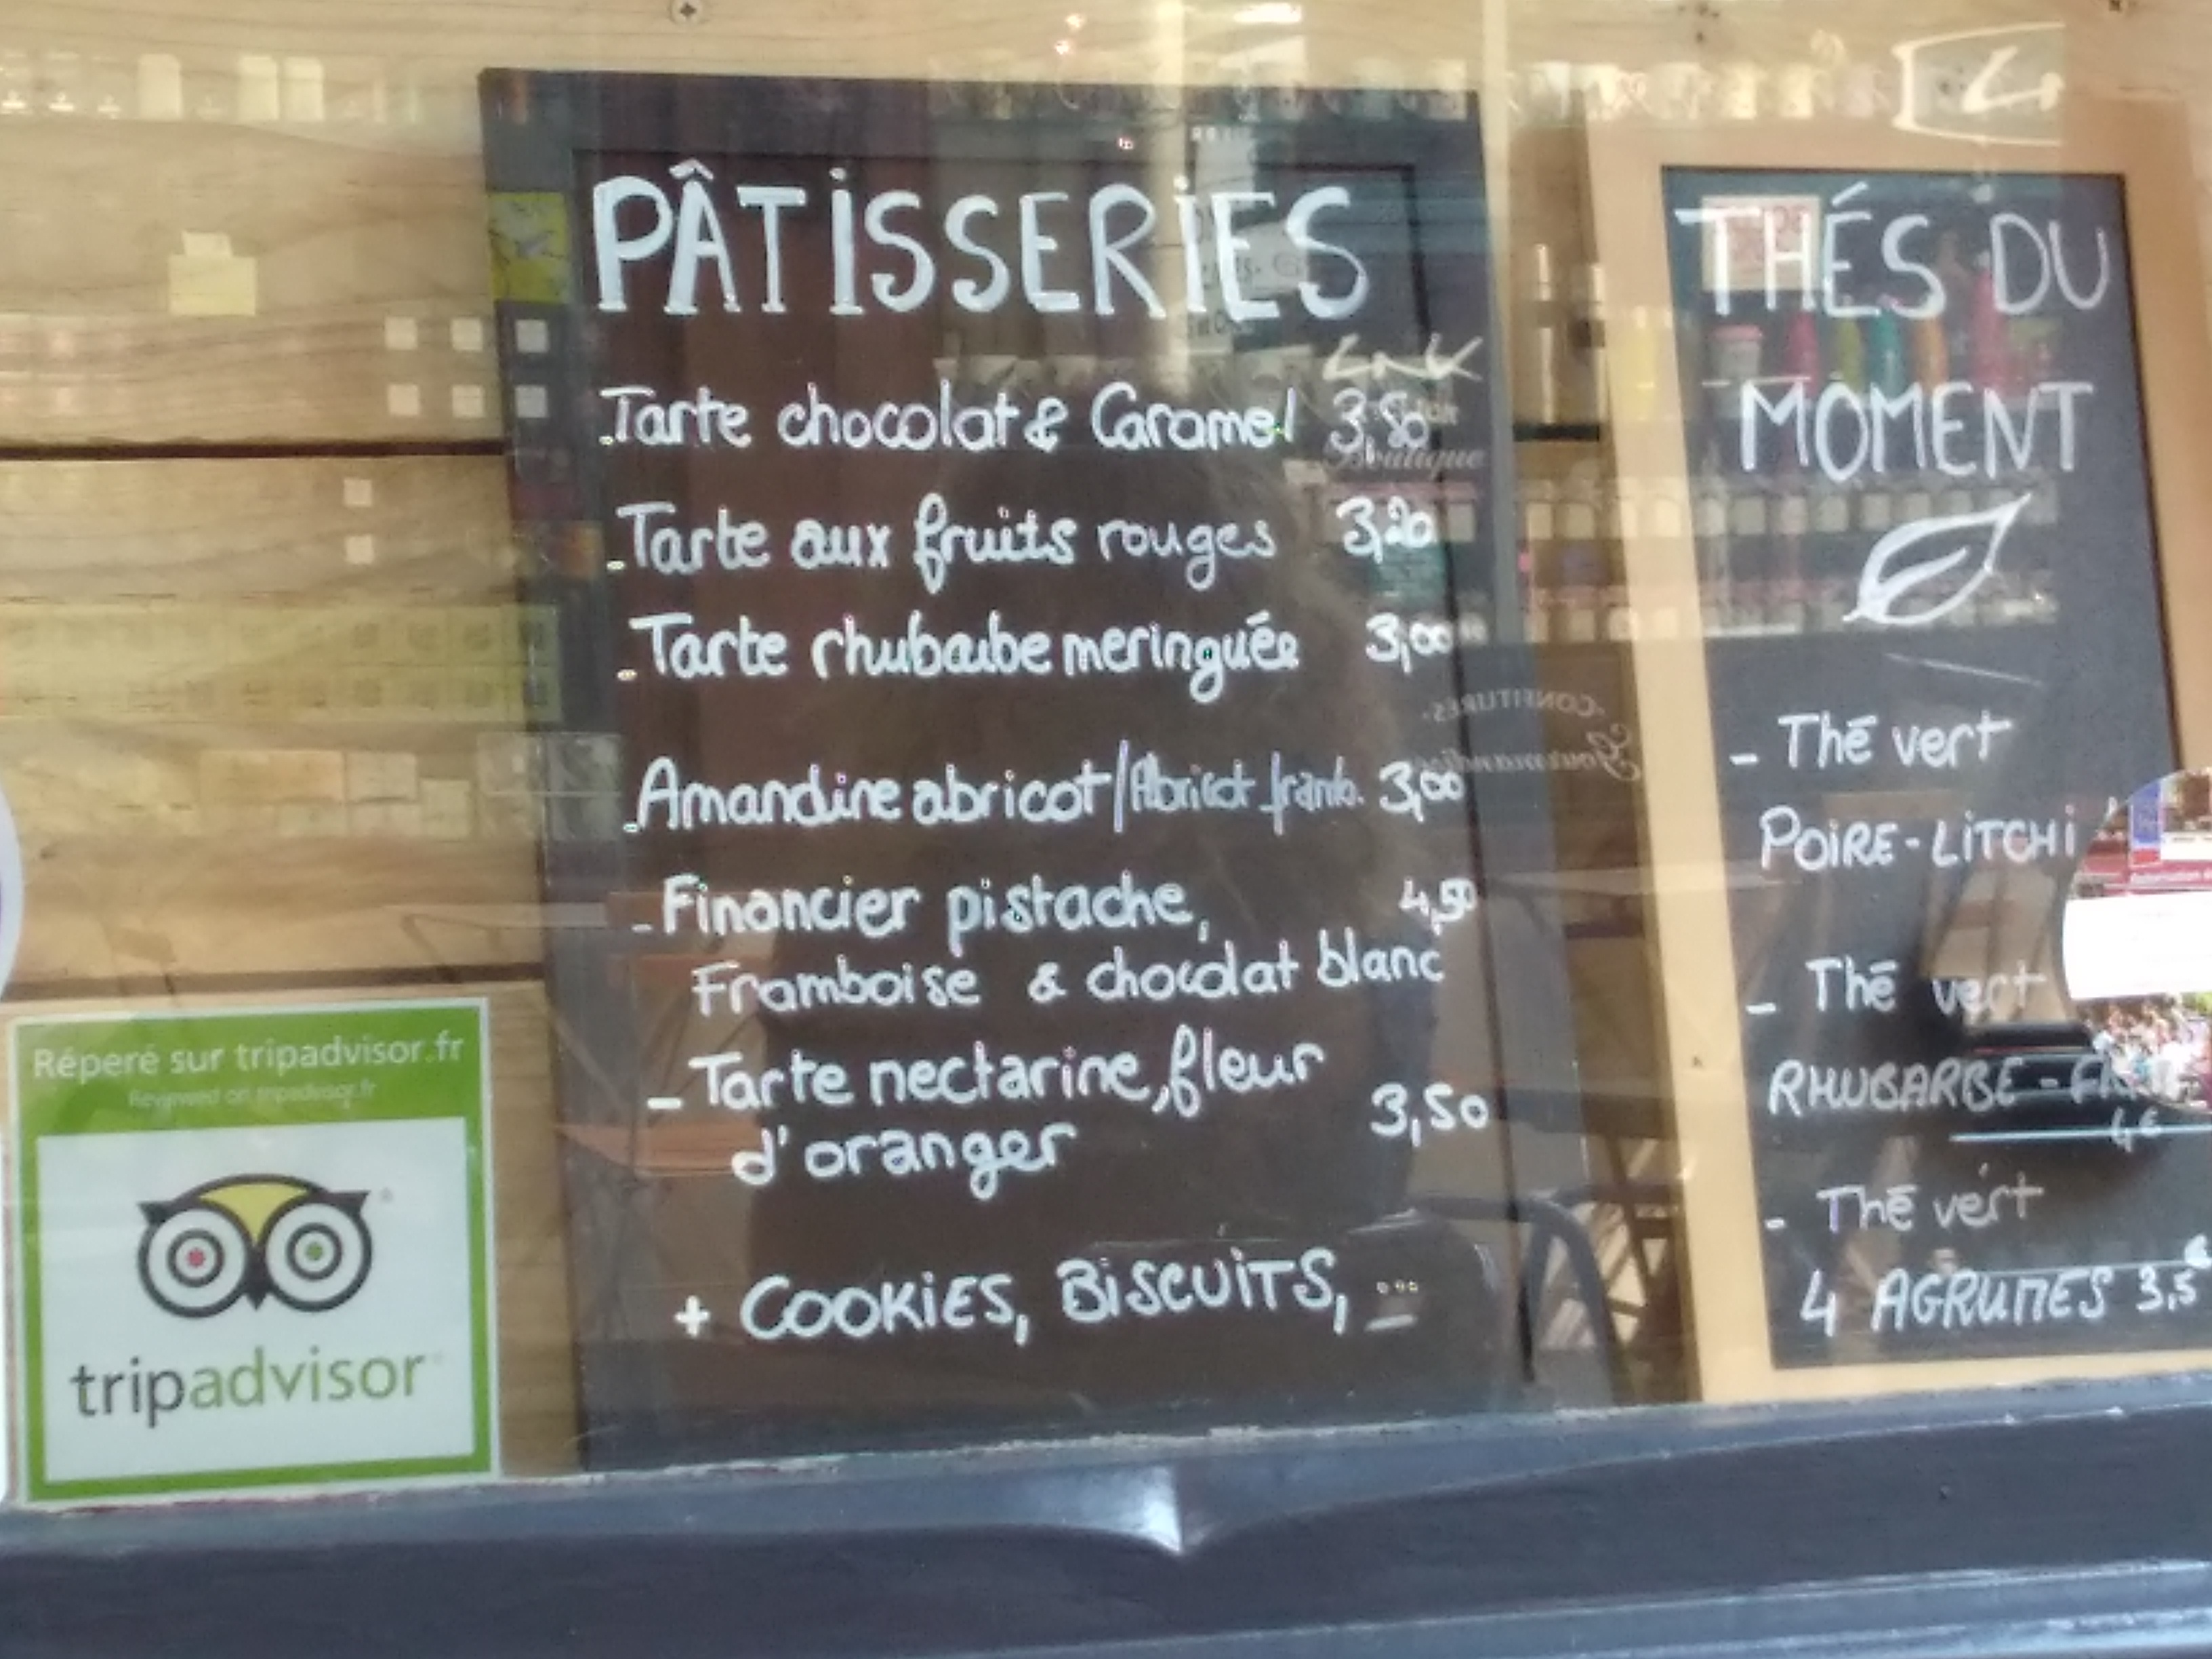 PÂTISSERIES
-Tarte chocolat & Caramel 3,50
-Tarte aux fruits rouges 3,20
-Tarte rhubarbe meringuée 3,00
-Amandine abricot/Abricot framb. 3,00
-Financier pistache, 4,50
Framboise & chocolat blanc
-Tarte nectarine, fleur
d'oranger 3,50
+ COOKIES, BISCUITS, ...
THÉS DU
MOMENT
- Thé vert
POIRE-LITCHI
- Thé vert
RHUBARBE-
4€
- Thé vert
4 AGRUMES 3,5€
Boutique
·CONFITURES·
Gourmandises
Réperé sur tripadvisor.fr
Reviewed on tripadvisor.fr
tripadvisor